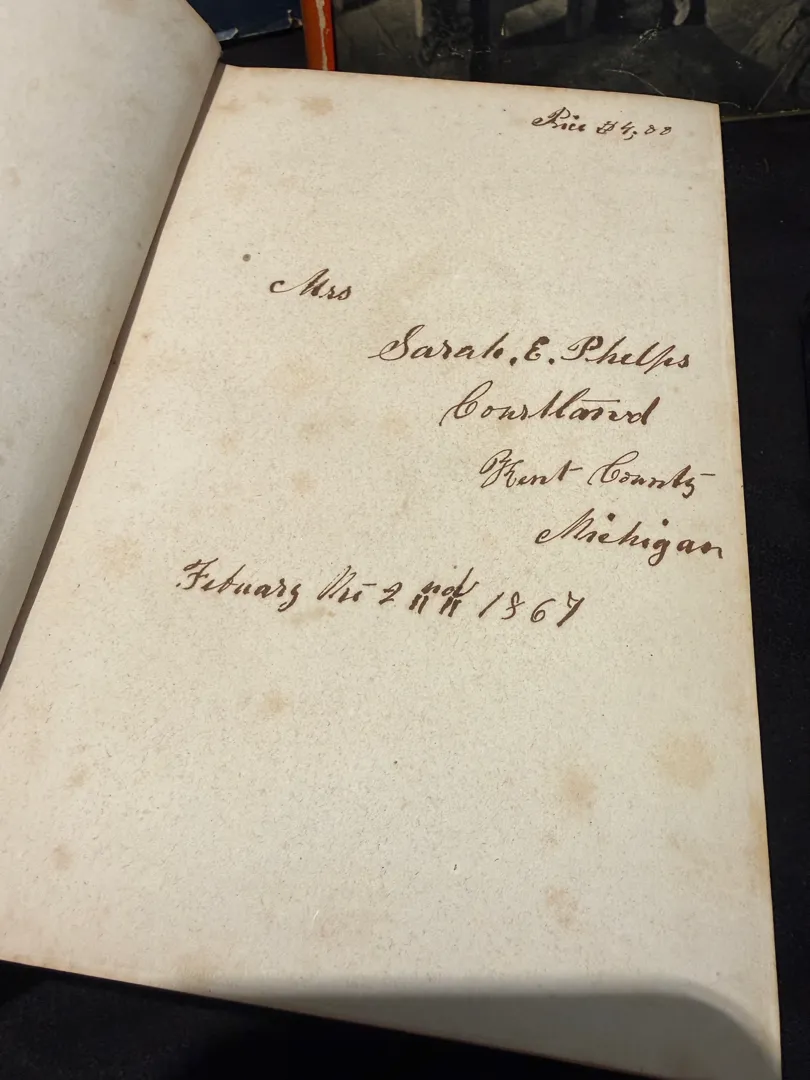 Price $4,00
Mrs
Sarah. E. Phelps
Courtland
Kent County
Michigan
Febuary 2 nd 1867